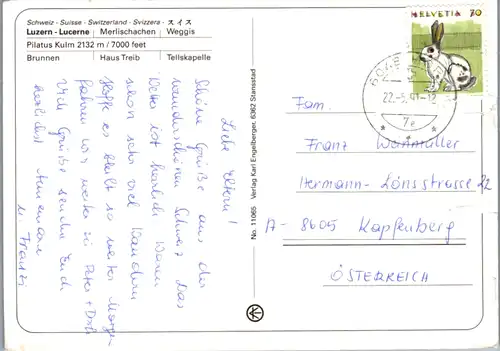 Schweiz - Suisse - Switzerland - Svizzera - スイス
Luzern - Lucerne Merlischachen Weggis
Pilatus Kulm 2132 m / 7000 feet
Brunnen Haus Treib Tellskapelle
Liebe Eltern!
Schöne Grüße aus der
wunderschönen Schweiz. Das
Wetter ist herrlich. Waren
schon sehr viel wandern
Hoffe es bleibt so weiter. Morgen
fahren wir weiter zu Peter + Dorli
Viele Grüße senden Euch
herzlichst Annemarie
u. Franzi
No. 11065 Verlag Karl Engelberger, 6362 Stansstad
HELVETIA 70
22.-5.91-12
7e
Fam.
Franz Wonmüller
Hermann-Lönsstrasse 22
A-8605 Kapfenberg
ÖSTERREICH